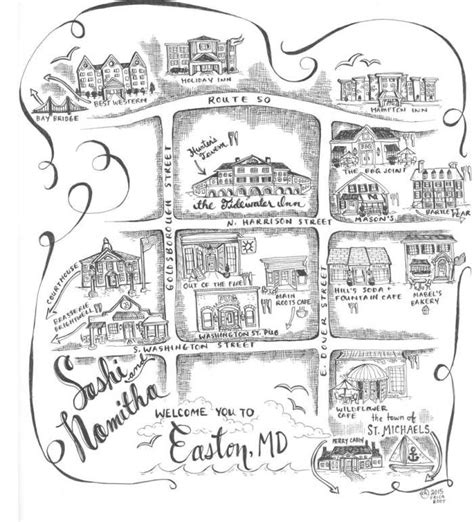 BEST WESTERN
HOLIDAY INN
HAMPTON INN
BAY BRIDGE
ROUTE 50
Hunter's
Tavern
the Tidewater Inn
THE BBQ JOINT
MASON'S
BARTLETT PEAR
N. HARRISON STREET
GOLDSBOROUGH STREET
COURTHOUSE
BRASSERIE
BRIGHTWELL
OUT OF THE FIRE
MAIN
ROOTS CAFE
WASHINGTON ST. PUB
E. DOVER STREET
HILL'S SODA +
FOUNTAIN CAFE
MABEL'S
BAKERY
S. WASHINGTON STREET
Sashi
and
Namitha
WELCOME YOU TO
Easton, MD
WILDFLOWER
CAFE
the town of
ST. MICHAELS
PERRY CABIN
© 2015